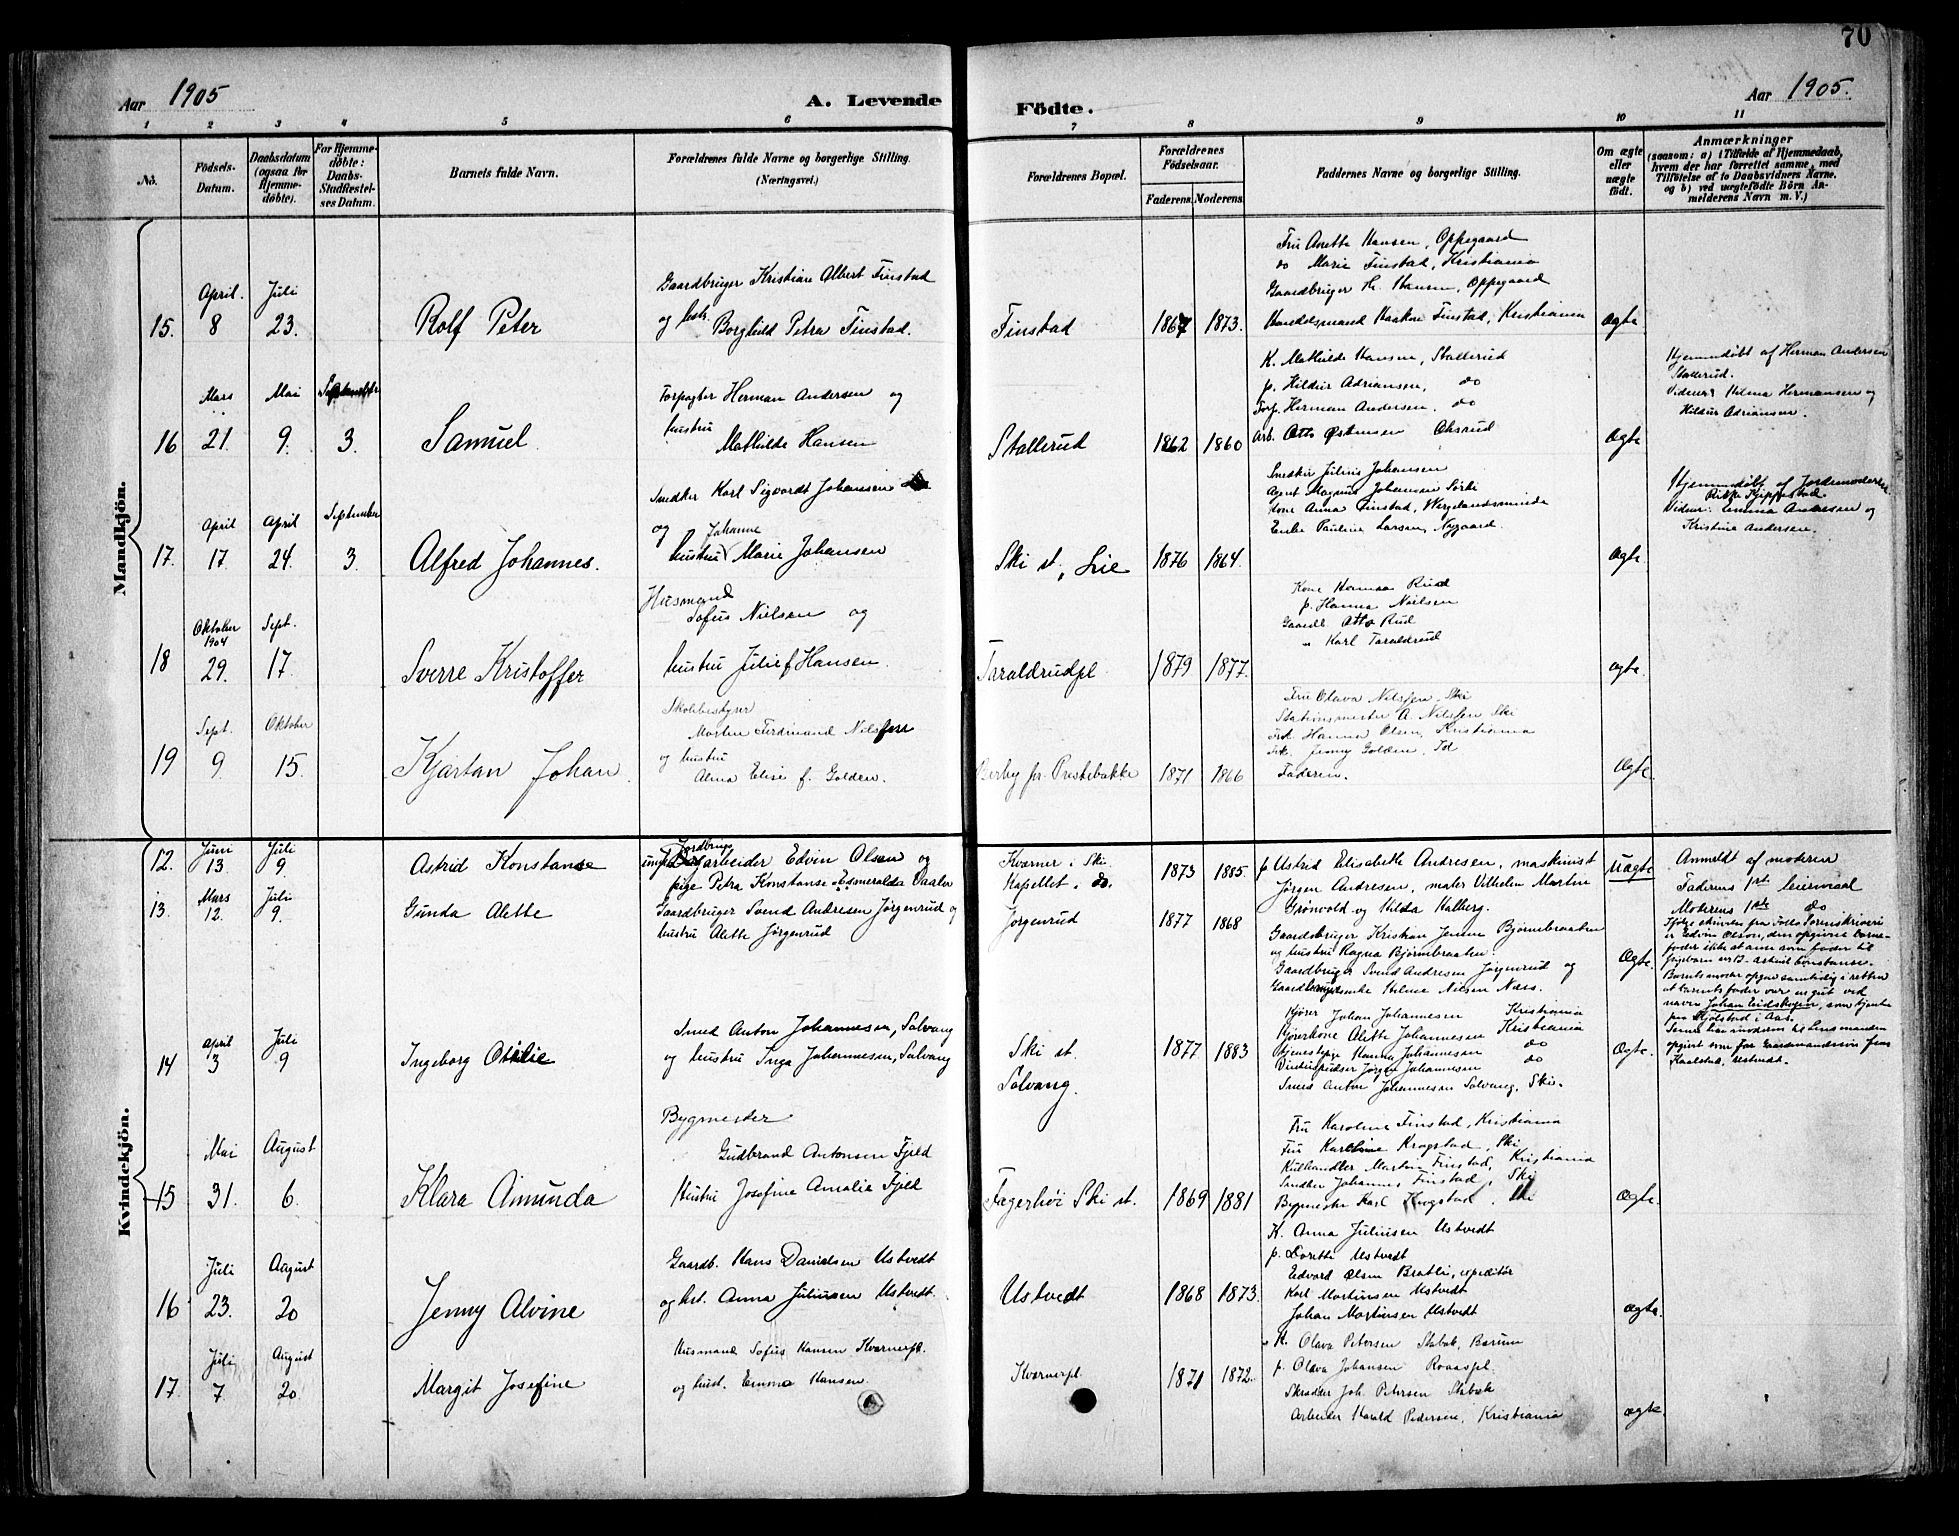 70
Aar 1905
A. Levende
Födte.
Aar 1905.
1 2 3 4 5 6 7 8 9 10 11
No.
Födsels-Datum.
Daabsdatum (ogsaa for Hjemmedöbte).
For Hjemmedöbte: Daabs-Stadfæstelses Datum.
Barnets fulde Navn.
Forældrenes fulde Navne og borgerlige Stilling.
(Næringsvei.)
Forældrenes Bopæl.
Forældrenes Födselsaar.
Faderens. Moderens.
Faddernes Navne og borgerlige Stilling.
Om ægte eller uægte födt.
Anmærkninger
(saasom: a) i Tilfælde af Hjemmedaab, hvem der har forrettet samme, med Tilföielse af to Daabsvidners Navne. og b) ved uægtefödte Börn Anmelderens Navn m. V.)
Mandkjön.
15.
April. 8
Juli 23.
Rolf Peter
Gaardbruger Kristian Albert Finstad
og hstr. Borghild Petra Finstad.
Finstad
1867
1873.
Fru Anette Hansen, Oppegaard
do Marie Finstad, Kristiania
Gaardbruger H. Hansen, Oppegaard
Handelsmand Haakon Finstad, Kristiania
Ægte
16
Mars 21.
Mai 9.
September 3.
Samuel
Forpagter Herman Andersen og
hustru Mathilde Hansen
Stallerud
1862
1860
K. Mathilde Hansen, Stallerud
p. Hildur Adriansen, do
Forp. Herman Andersen, do
Arb. Otto Østensen Oksrud
Ægte
Hjemmdøbt af Herman Andersen
Stallerud.
Vidner: Helma Hermansen og
Hildur Adriansen.
17.
April 17.
April 24.
September 3.
Alfred Johannes.
Snedker Karl Sigvardt Johansen
og Johanne
hustru Marie Johansen
Ski st., Lie
1876
1864.
Snedker Julius Johansen
Agent Magnus Johansen Sørli
Kone Anna Finstad, Wergelandsminde
Enke Pauline Larsen, Nygaard.
Ægte.
Hjemmdøbt af Jordemoderen
Rikke Kjeppestad
Vidner: Emma Andersen og
Kristine Andersen.
18
Oktober 1904 29.
Sept. 17.
Sverre Kristoffer
Husmand
Sofus Nielsen og
hustru Julie f Hansen.
Taraldrudpl.
1879
1877.
Kone Hermaa Rud
p. Hanna Nielsen
Gaardb Otto Rud
" Karl Taraldrud
ægte.
19
Sept. 9.
Oktober 15.
Kjartan Johan.
Skolebestyrer
Morten Ferdinand Nilssen
og hustru
Alma Elise f. Golden.
Berby pr. Prestebakke
1871
1866
Fru Olava Nilssen, Ski
Stationsmester A. Nilssen Ski
Frk Hanna Olsen, Kristiania
Frk. Jenny Golden, Id
Faderen.
Ægte.
Kvindekjön.
12.
Juni 13.
Juli 9.
Astrid Konstanse
ungk. Jordbrugsarbeider Edvin Olsen og
pige Petra Konstanse Esmeralda Daaler
Kverner i Ski
Kapellet i do.
1873
1885.
p Astrid Elisabeth Andresen, maskinist
Jørgen Andresen, maler Vilhelm Martin
Grønvold og Hilda Kalberg.
Uægte
Anmeldt af moderen
Faderens 1ste leiermaal
Moderens 1ste do
Ifølge skrivelse fra Follo Sorenskriveri
er Edvin Olsen, den opgivne barnefader ikke at anse som fader til
pigebarn Astrid Constanse.
Barnets mor opgav samtidig i retten
at barnets fader var en gut ved
navn Johan Eidskogen, som tjente
paa Kjølstad i Aas.
13.
Mars 12.
Juli 9.
Gunda Alette
Gaardbruger Svend Andresen Jørgenrud og
hustru Alette Jørgenrud
Jørgenrud
1877
1868
Gaardbruger Kristian Jensen Bjørnebraaten
og hustru Ragna Bjørnebraaten.
Gaardbruger Svend Andresen Jørgenrud og
Gaardbrugerenke Helene Nielsen Næss.
Ægte.
14
April 3
Juli 9
Ingeborg Ottilie
Smed Anton Johannesen, Solvang
og hustru Inga Johannesen, Solvang
Ski st.
Solvang.
1877
1883
Kjører Johan Johannesen Kristiania
Kjørerkone Alette Johannesen Kristiania
Tjenestepige Hanna Johannesen do
Jørgen Johannesen do
Smed Anton Johannesen Solvang, Ski.
Ægte.
15
Mai 31.
August 6.
Klara Amunda
Bygmester
Gudbrand Antonsen Fjeld
Hustru Josefine Amalie Fjeld
Fagerhøi Ski st.
1869
1881
Fru Karoline Finstad, Kristiania
Fru Karoline Krogstad, Ski
Kulhandler Martin Finstad, Kristiania
Snedker Johannes Finstad, Ski
Bygmester Karl Krogstad, Ski
Ægte.
16
Juli 23.
August 20
Jenny Alvine
Gaardb. Hans Danielsen Ustvedt
og hst. Anna Juliussen Ustvedt.
Ustvedt
1868
1873.
K. Anna Juliussen Ustvedt
p. Dorette Ustvedt
Edvard Olsen Bratli, expeditør
Karl Martinsen Ustvedt
Johan Martinsen Ustvedt
ægte.
17
Juli 7
August 20.
Margit Josefine
Husmand Sofus Hansen Kvernerpl.
og hust. Emma Hansen.
Kvernerpl.
1871
1872.
K. Olava Petersen Stabæk, Bærum
p. Olava Johansen Roaaspl.
Skrædder Joh. Petersen Stabæk
Arbeider Harald Pedersen, Kristiania
ægte.